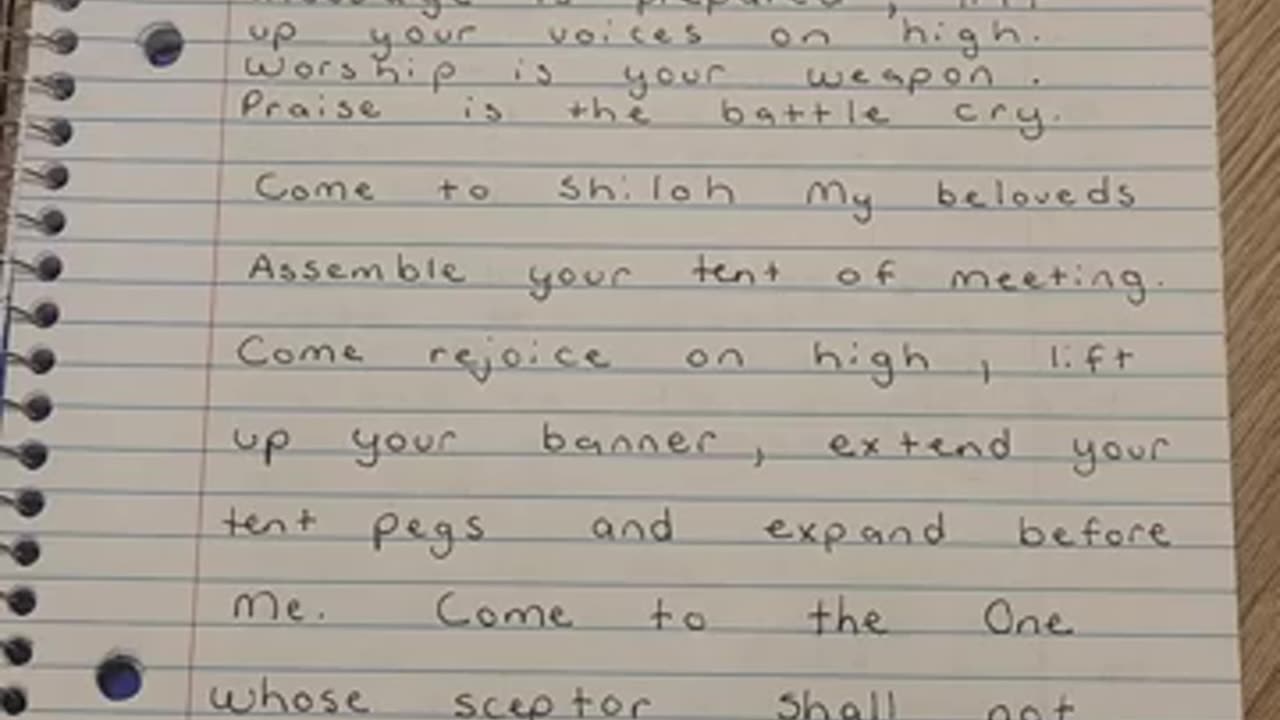 message is prepared, lift
up your voices on high.
Worship is your weapon.
Praise is the battle cry.
Come to Shiloh My beloveds
Assemble your tent of meeting.
Come rejoice on high, lift
up your banner, extend your
tent pegs and expand before
Me. Come to the One
whose sceptor shall not